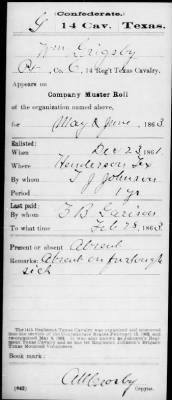 (Confederate.)
G 14 Cav. Texas.
Wm Grigsby
Pt, Co. C, 14 Reg't Texas Cavalry.
Appears on
Company Muster Roll
of the organization named above,
for May & June, 1863
Enlisted:
When Dec 23, 1861
Where Henderson Tex
By whom T J Johnson
Period 1 yr
Last paid:
By whom F B Garison
To what time Feb 28, 1863
Present or absent Absent
Remarks: Absent on furlough
sick
The 14th Regiment Texas Cavalry was organized and mustered
Book mark:
(642) Copyist.